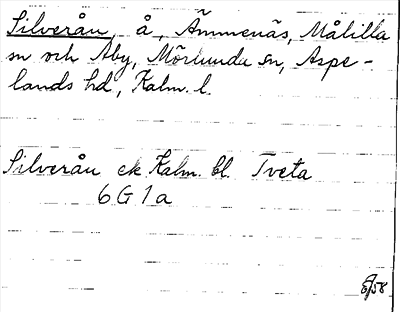 Silverån, å, Ämmenäs, Målilla
sn och Åby, Mörlunda sn, Aspe-
lands hd, Kalm. l.
Silverån ek Kalm. bl. Tveta
6 G 1 a